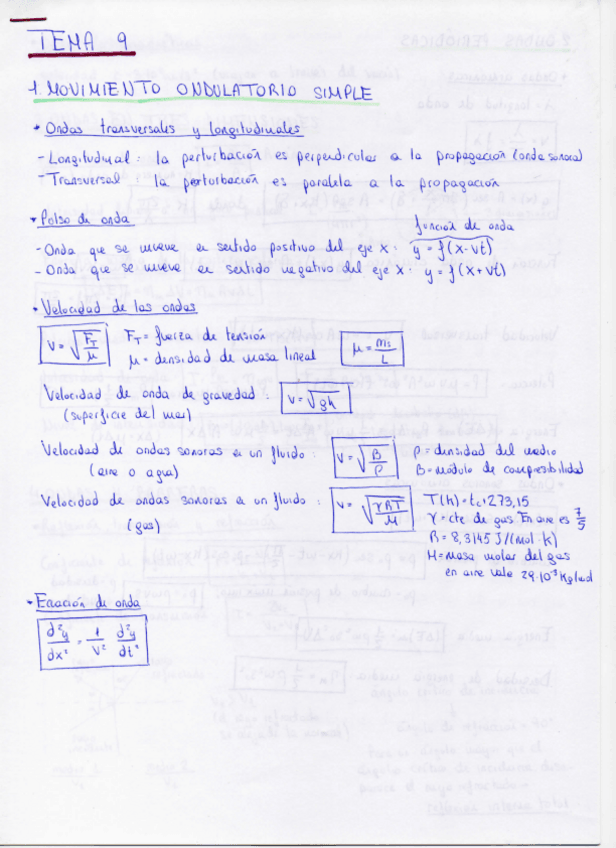 TEMA 9
1. MOVIMIENTO ONDULATORIO SIMPLE
* Ondas transversales y longitudinales
- Longitudinal : la perturbación es perpendicular a la propagación (onda sonora)
- Transversal : la perturbación es paralela a la propagación
* Pulso de onda
función de onda
- Onda que se mueve en sentido positivo del eje X: y = f(x-vt)
- Onda que se mueve en sentido negativo del eje X: y = f(x+vt)
* Velocidad de las ondas
v = √(F_T/μ) F_T = fuerza de tensión
μ = densidad de masa lineal μ = m/L
Velocidad de onda de gravedad : v = √gh
(superficie del mar)
Velocidad de ondas sonoras en un fluido : v = √(B/ρ) ρ = densidad del medio
(aire o agua) B = módulo de compresibilidad
Velocidad de ondas sonoras en un fluido : v = √(γRT/M) T(k) = tc+273,15
(gas) γ = cte de gas. En aire es 7/5
R = 8,3145 J/(mol·k)
M = masa molar del gas
en aire vale 29·10⁻³ Kg/mol
* Ecuación de onda
d²y/dx² = 1/v² d²y/dt²